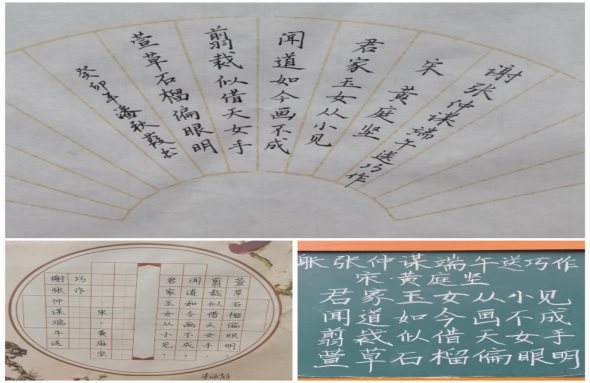 谢张仲谋端午送巧作
宋 黄庭坚
君家玉女从小见
闻道如今画不成
翦裁似借天女手
萱草石榴偏眼明
癸卯年潘秋霞书
谢张仲谋端午送
巧作
宋·黄庭坚
君家玉女从小见，
闻道如今画不成。
翦裁似借天女手，
萱草石榴偏眼明。
张仲谋端午送巧作
宋 黄庭坚
君家玉女从小见
闻道如今画不成
翦裁似借天女手
萱草石榴偏眼明